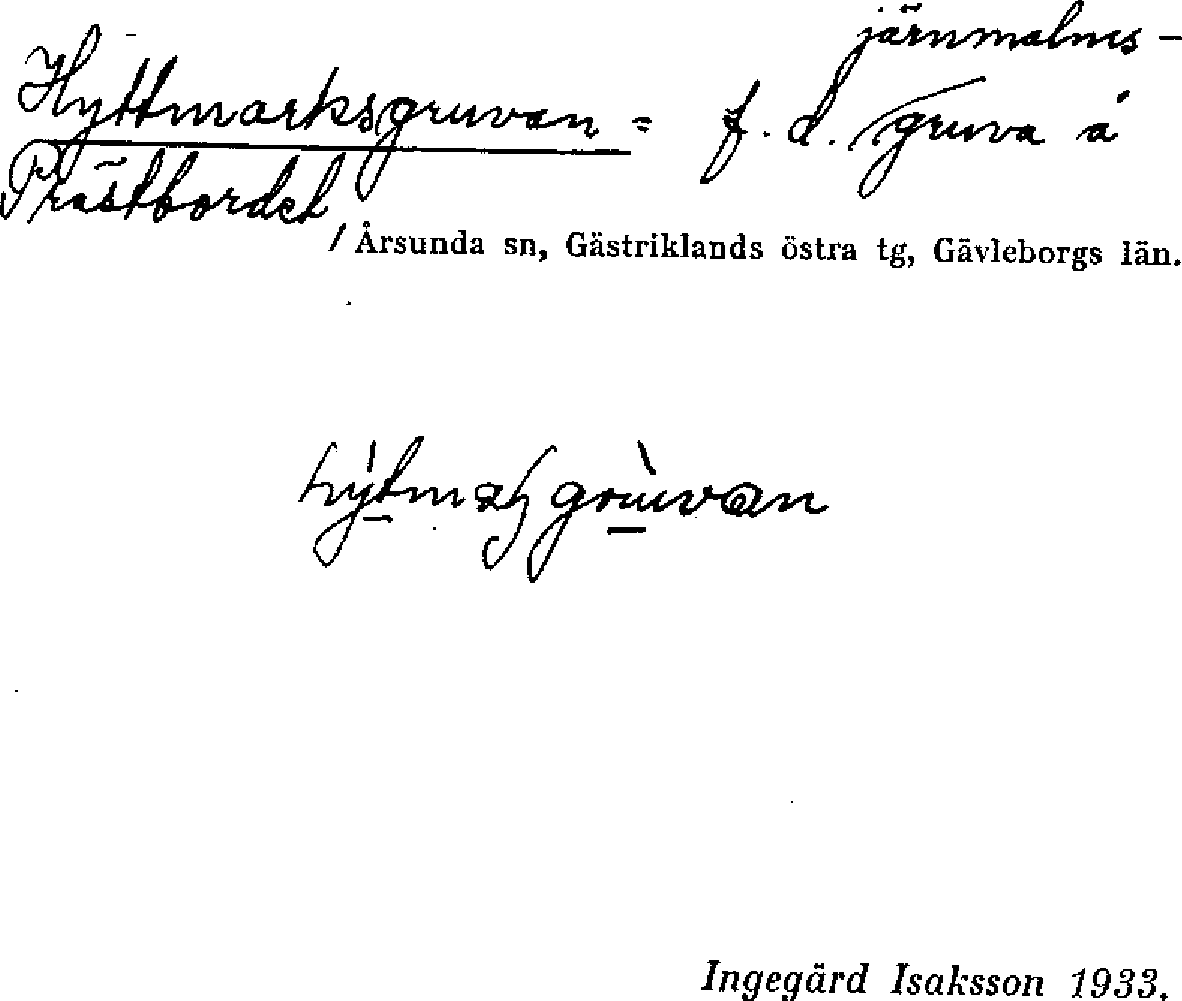 järnmalms-
Hyttmarksgruvan = f. d. gruva å
Prästbordet
/ Årsunda sn, Gästriklands östra tg, Gävleborgs län.
Ingegärd Isaksson 1933.